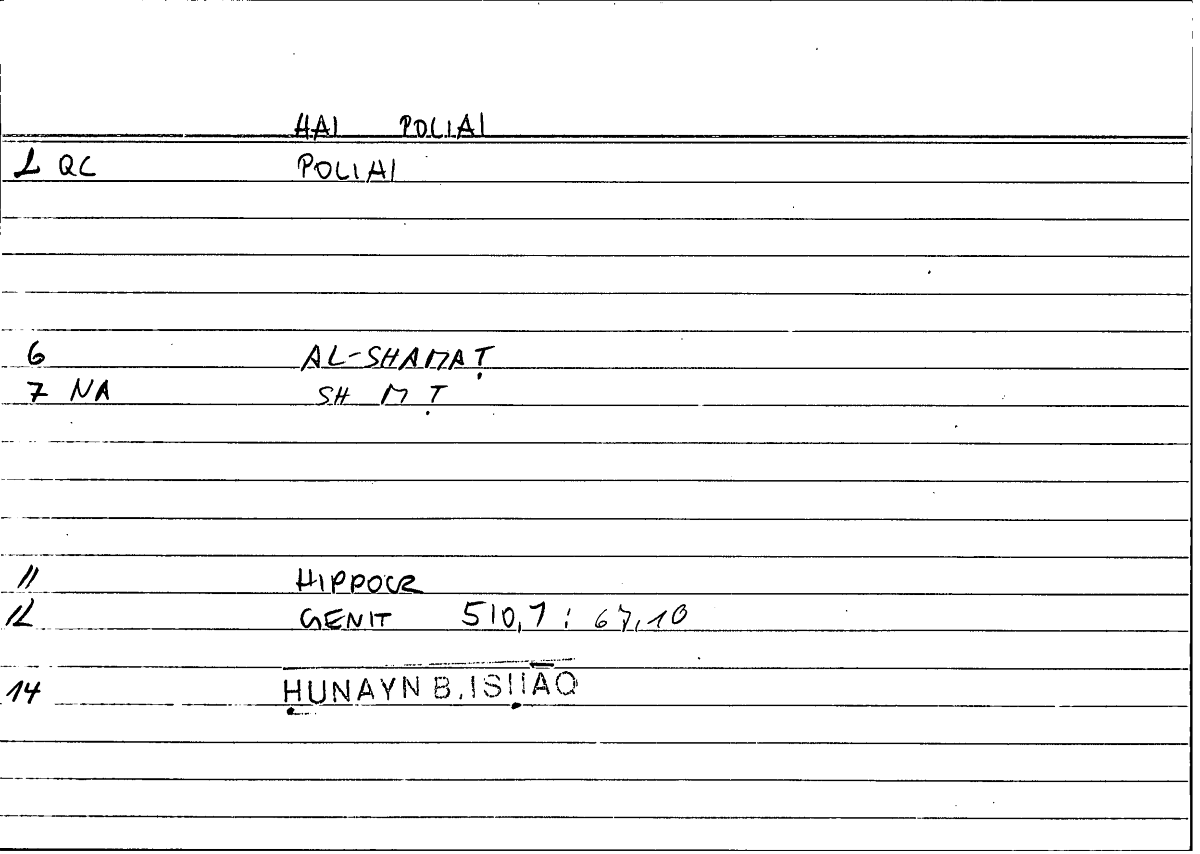 HAI POLIAI
1 QC POLIAI
6 AL-SHAMAṬ
7 NA SH M Ṭ
11 HIPPOCR
12 GENIT 510,7 : 67,10
14 ḤUNAYN B. ISḤĀQ